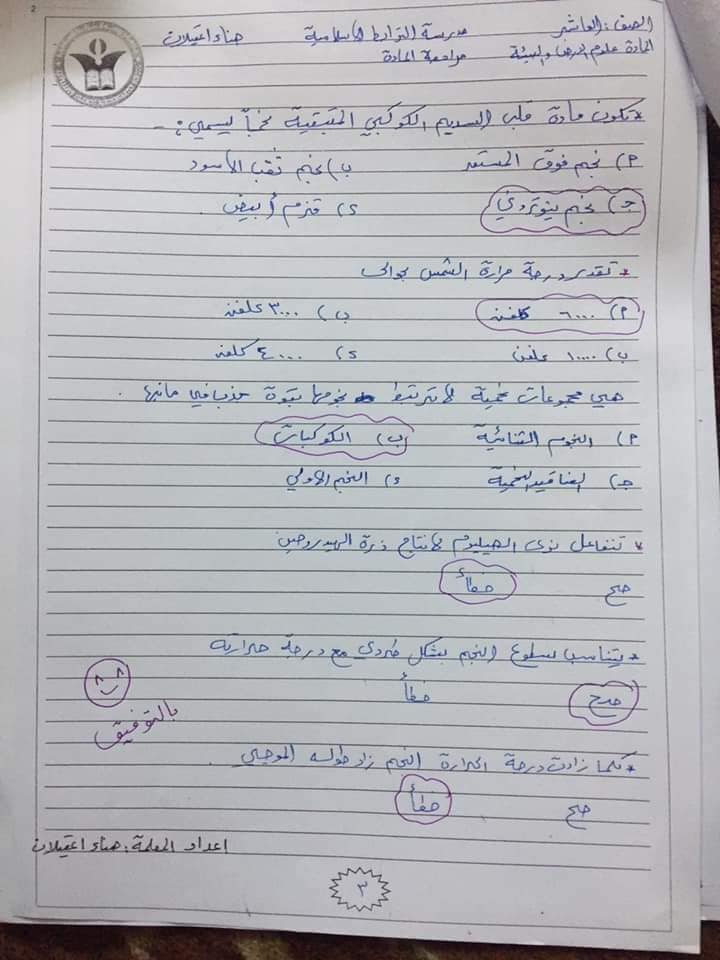 2
الصف: العاشر مدرسة الترابط الاسلامية هناء اعتيلان
المادة علوم الارض والبيئة مراجعة المادة
* تكون مادة قلب السديم الكوكبي المتبقية نجماً يسمى :-
٢) نجم فوق المستعر ب) نجم ثقب الأسود
جـ) نجم نيوتروني د) قزم أبيض
* تقدر درجة حرارة الشمس بحوالي
٢) ٦٠٠٠ كلفن ب) ٣٠٠٠ كلفن
ب) ١٠٠٠٠ كلفن د) ٤٠٠٠٠ كلفن
هي مجموعات نجمية لا ترتبط نجومها بقوة جذب في ما بينها .
٢) النجوم الثنائية ب) الكوكبات
جـ) العناقيد النجمية د) النجم الاولي
* تتفاعل نوى الهيليوم لانتاج ذرة الهيدروجين
صح خطأ
* يتناسب سطوع النجم بشكل طردي مع درجة حرارته
صح خطأ
بالتوفيق
* كلما زادت درجة الحرارة النجم زاد طوله الموجي .
صح خطأ
اعداد المعلمة : هناء اعتيلان
٣